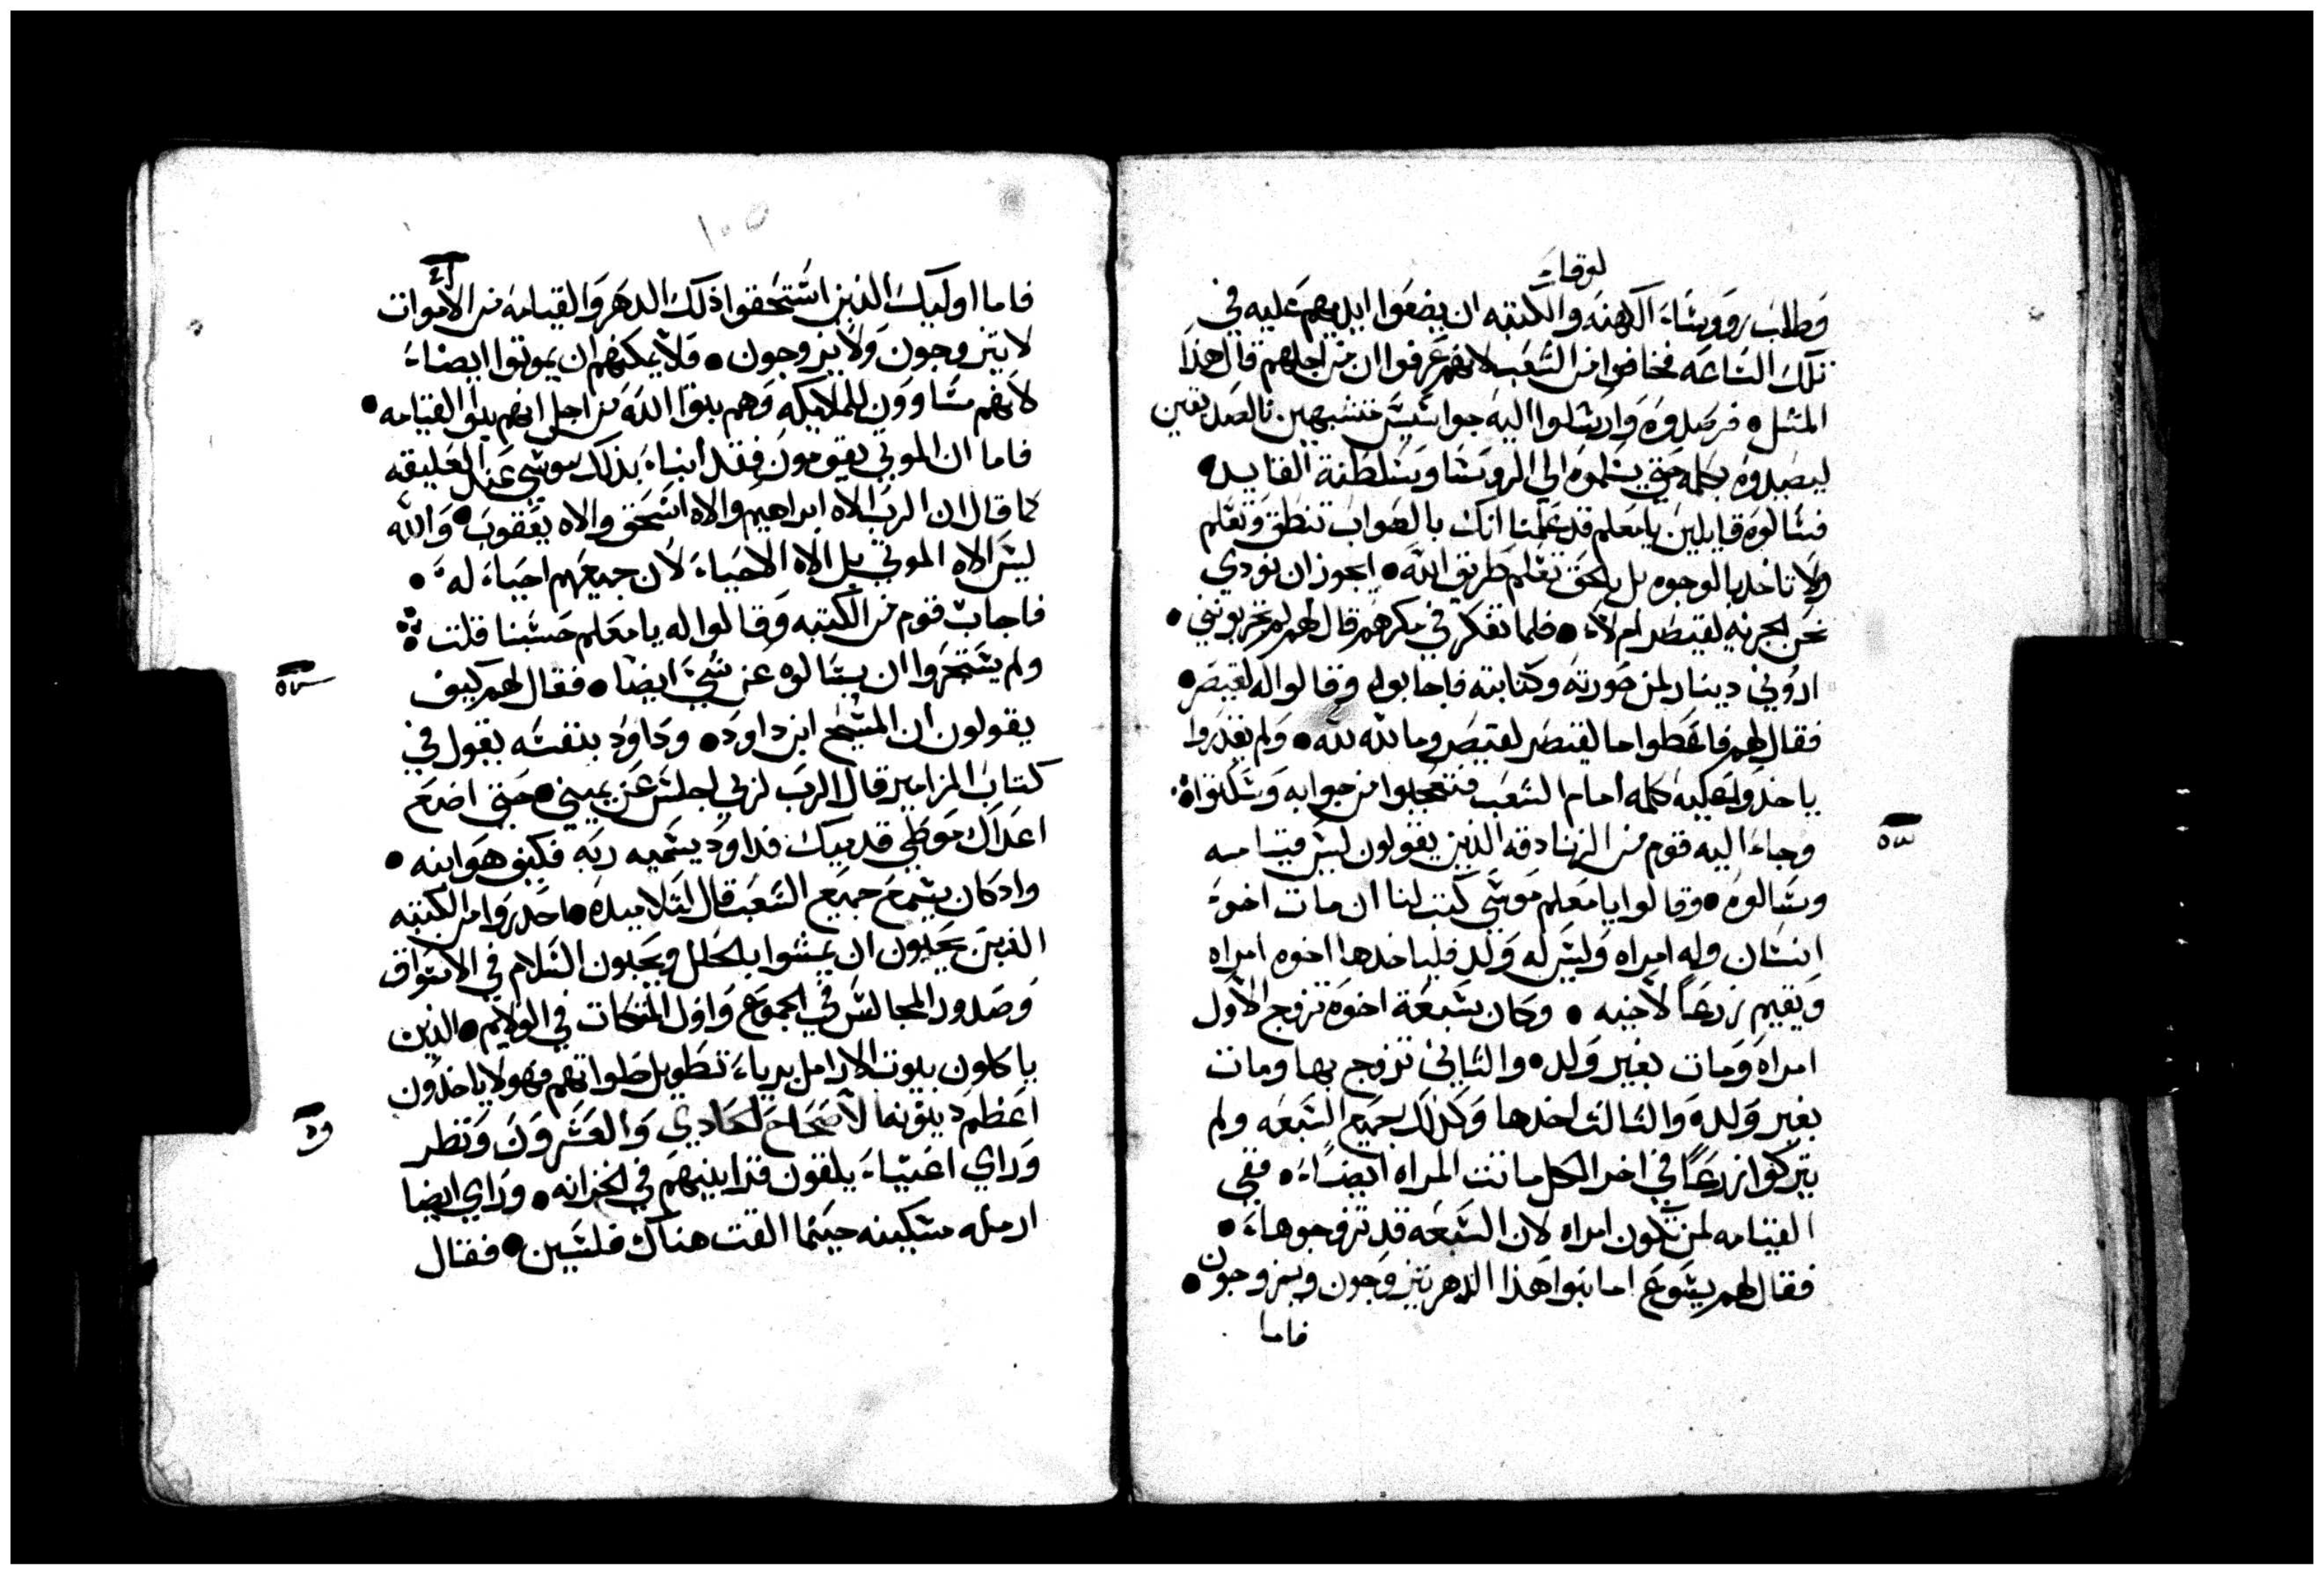 لوقا
وطلب روٓوسَاء الكهنه والكتبه ان يضعوا ايديهم عليه في
تلك السَاعَه فخافوا من الشعب لانهم عرفوا ان من اجلهم قال هذا
المثل • فرصدوه وارسَلوا اليه جواسَيسَ متشبهين بالصديقين
ليصيدوه بكلمه حتي يسَلموه الي الروسَا وسَلطنة القايد •
فسَالوه قايلين يامعلم قد علمنا انك بالصواب تنطق وتعلم
ولا تاخد بالوجوه بل بالحق تعلم طريق الله • ايجوز ان نودي
نحن الجزيه لقيصر ام لا • فلما تفكر في مكرهم قال لهم لم تجربونني •
اروني دينار لمن صورته وكتابته فاجابوا وقالوا له لقيصر •
فقال لهم فاعطوا ما لقيصر لقيصر وما لله لله • ولم يقدروا
ياخدوا عليه كلمه امام الشعب فتعجبوا من جوابه وسَكتوا
سه
وجاء اليه قوم من الزنادقه الذين يقولون ليسَ قيامه
وسَالوه • وقالوا يامعلم موسَي كتب لنا ان مات اخو
انسَان وله امراه وليسَ له ولد فلياخدها اخوه امراه
ويقيم زرعاً لاخيه • وكان سَبعة اخوه تزوج الاول
امراه ومات بغير ولد • والثاني تزوج بها ومات
بغير ولد • والثالث اخدها وكذلك جميع السَبعه ولم
يتركوا زرعاً في اخر الكل ماتت المراه ايضاً • ففي
القيامه لمن تكون امراه لان السَبعه قد تزوجوها •
فقال لهم يسَوع اما بنوا هذا الدهر يتزوجون ويزوجون •
فاما
١٠٥
فاما اوليك الذين اسَتحقوا ذلك الدهر والقيامه من الاموات
لا يتزوجون ولا يزوجون • ولا يمكنهم ان يموتوا ايضاً
لانهم مسَاوون للملايكه وهم بنوا الله من اجل انهم بنوا القيامه •
فاما ان الموتي يقومون فقد انباء بذلك موسَي عند العليقه
كما قال ان الرب الاه ابراهيم والاه اسَحق والاه يعقوب • والله
ليسَ الاه الموتي بل الاه الاحياء لان جميعهم احياء له •
فاجاب قوم من الكتبه وقالوا له يا معلم حسَبنا قلت
ولم يسَتجروا ان يسَالوه عن شي ايضاً • فقال لهم كيف
يقولون ان المسَيح ابن داود • وداود بنفسَه يقول في
كتاب المزامير قال الرب لربي اجلسَ عن يميني • حتي اضع
اعداك موطي قدميك فداود يسَميه ربه فكيف هو ابنه •
واد كان يسَمع جميع الشعب قال لتلاميده • احدروا من الكتبه
الذين يحبون ان يمشوا بالحلل ويحبون السَلام في الاسَواق
وصدور المجالسَ في الجموع واول المتكات في الولايم • الذين
ياكلون بيوت الارامل برياء تطويل صلواتهم فهولا ياخدون
اعظم دينونه الاصحاح الحادي والعشرون ونظر
وراي اغنياء يلقون قرابينهم في الخزانه • وراي ايضا
ارمله مسَكينه حينما القت هناك فلسَين • فقال